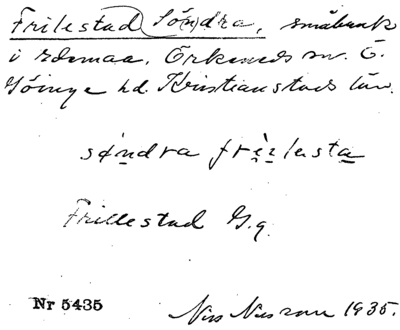 Frilestad Söndra, småbruk
i rdemaa. Örkeneds sn. Ö.
Göinge hd. Kristianstads län.
söndra frìlesta
Frillestad G.g.
Nr 5435
Nils Nilsson 1935.